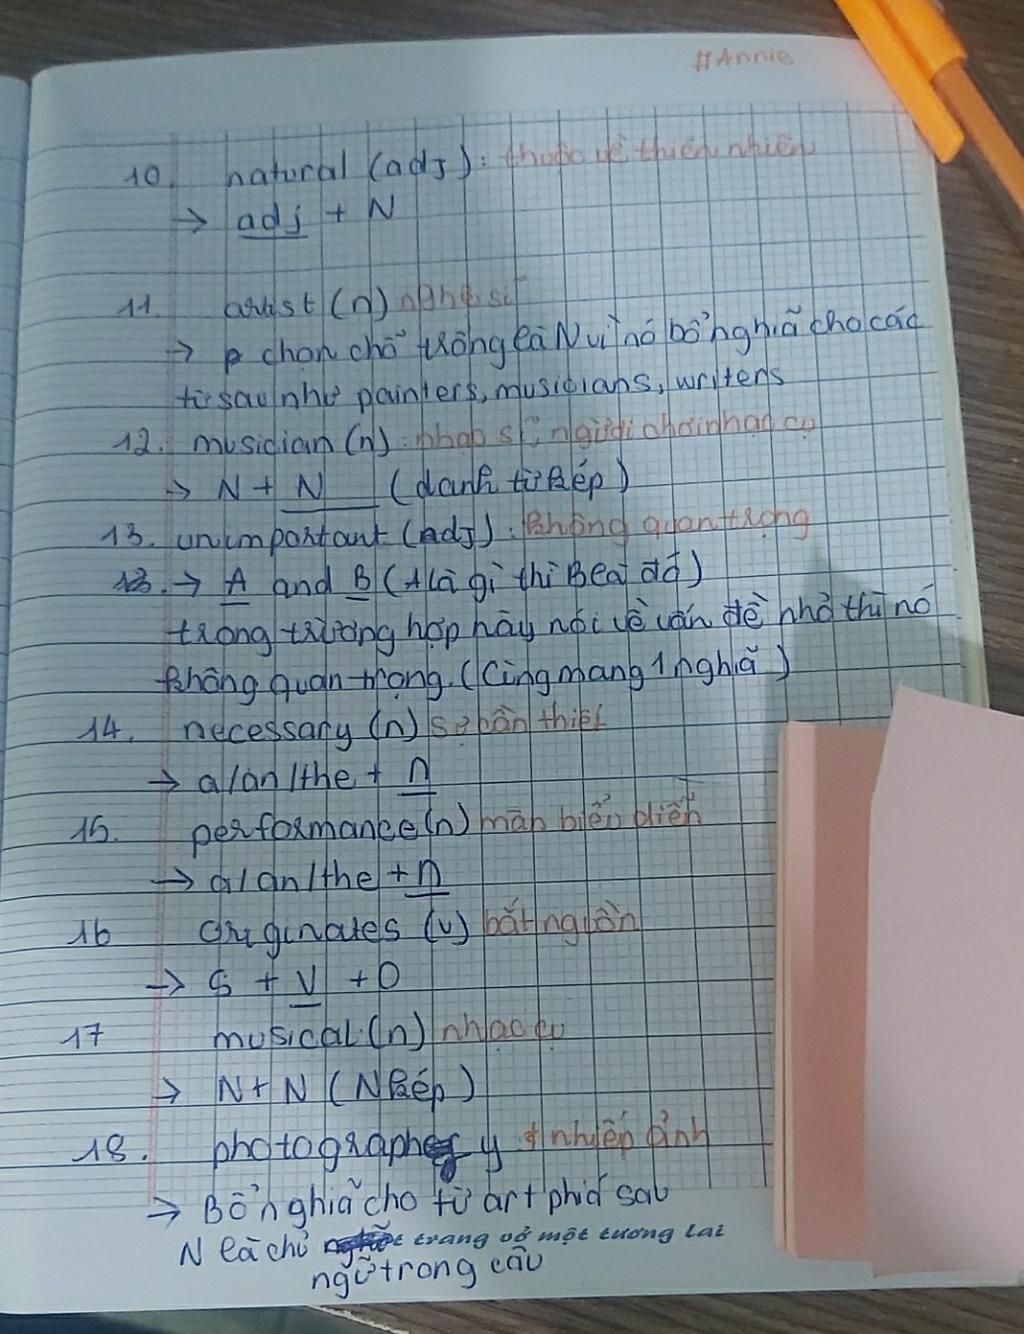 #Annie
10. natural (adj): thuộc về thiên nhiên
→ adj + N
11. artist (n) nghệ sĩ
→ p chọn chỗ trống là N vì nó bổ nghĩa cho các
từ sau như painters, musicians, writers
12. musician (n): nhạc sĩ, người chơi nhạc cụ
→ N + N (danh từ kép)
13. unimportant (adj): không quan trọng
→ A and B (A là gì thì B là đó)
trong trường hợp này nói về vấn đề nhỏ thì nó
không quan trọng. (Cùng mang 1 nghĩa)
14. necessary (n) sự cần thiết
→ a/an/the + n
15. performance (n) màn biểu diễn
→ a/an/the + n
16 originates (v) bắt nguồn
→ S + V + O
17 musical (n) nhạc cụ
→ N + N (N kép)
18. photography nhiếp ảnh
→ Bổ nghĩa cho từ art phía sau
N là chủ trang vở một tương lai
ngữ trong câu